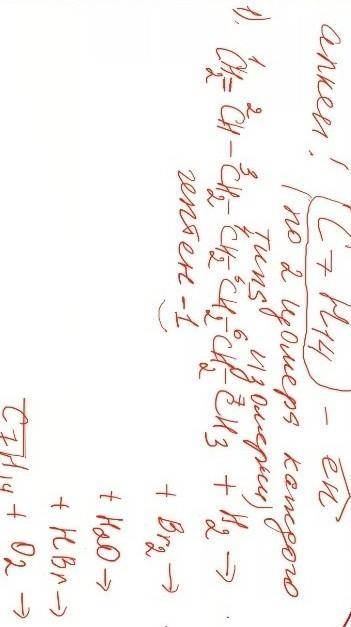 алкен! (C7H14) - ен
(по 2 изомера каждого
типа изомерии)
1). CH2=CH-CH2-CH2-CH2-CH2-CH3 + H2 →
1 2 3 4 5 6 7
гептен-1
+ Br2 →
+ H2O →
+ HBr →
C7H14 + O2 →